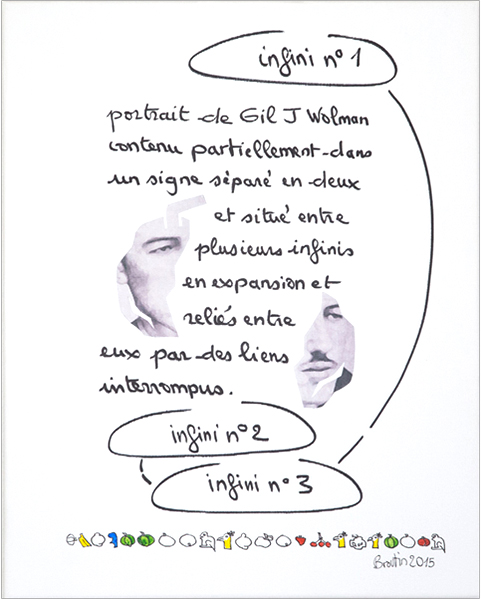 infini n° 1
portrait de Gil J Wolman
contenu partiellement dans
un signe séparé en deux
et situé entre
plusieurs infinis
en expansion et
reliés entre
eux par des liens
interrompus.
infini n° 2
infini n° 3
Broutin 2015